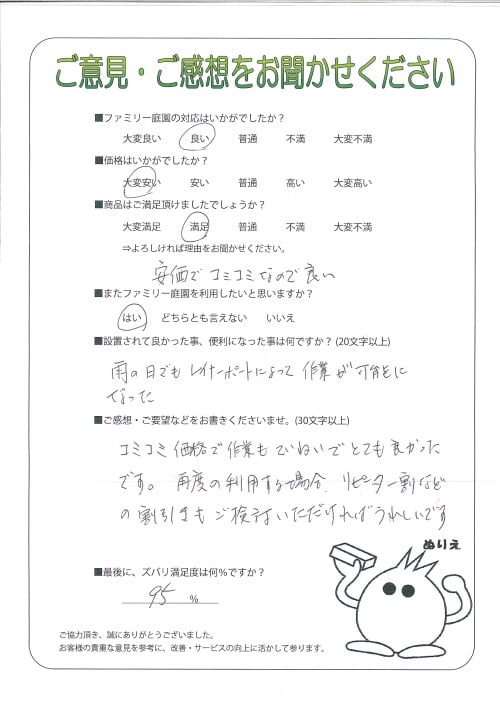 ご意見・ご感想をお聞かせください
■ファミリー庭園の対応はいかがでしたか？
大変良い 良い 普通 不満 大変不満
■価格はいかがでしたか？
大変安い 安い 普通 高い 大変高い
■商品はご満足頂けましたでしょうか？
大変満足 満足 普通 不満 大変不満
⇒よろしければ理由をお聞かせください。
安価でコミコミなので良い
■またファミリー庭園を利用したいと思いますか？
はい どちらとも言えない いいえ
■設置されて良かった事、便利になった事は何ですか？(20文字以上)
雨の日でもレイナーポートによって作業が可能に
なった
■ご感想・ご要望などをお書きくださいませ。(30文字以上)
コミコミ価格で作業もていねいでとても良かった
です。再度の利用する場合、リピーター割など
の割引きもご検討いただければうれしいです
ぬりえ
■最後に、ズバリ満足度は何％ですか？
95 ％
ご協力頂き、誠にありがとうございました。
お客様の貴重な意見を参考に、改善・サービスの向上に活かして参ります。